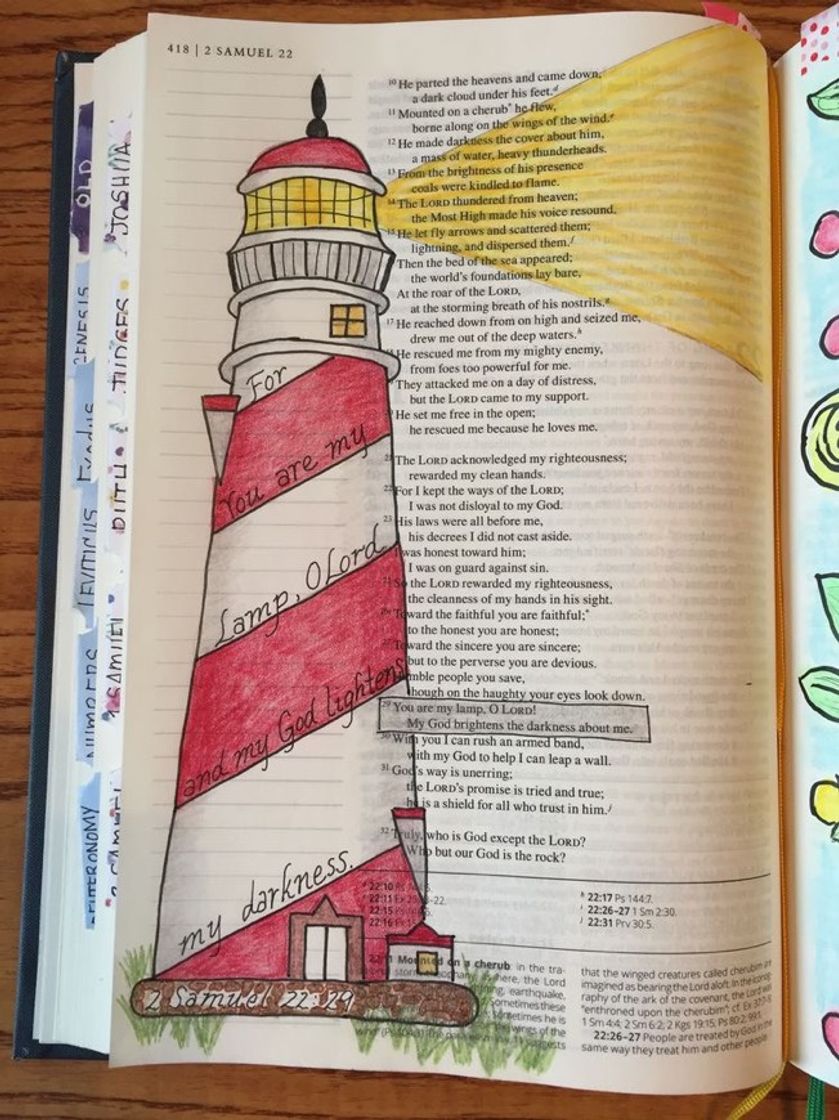 418 | 2 SAMUEL 22
OLD
GENESIS
Exodus
LEVITICUS
NUMBERS
DEUTERONOMY
JOSHUA
JUDGES
RUTH
1 SAMUEL
2 SAMUEL
For
You are my
Lamp, O Lord
and my God lightens
my darkness.
2 Samuel 22:29
10 He parted the heavens and came down,
a dark cloud under his feet.d
11 Mounted on a cherub* he flew,
borne along on the wings of the wind.e
12 He made darkness the cover about him,
a mass of water, heavy thunderheads.
13 From the brightness of his presence
coals were kindled to flame.
14 The LORD thundered from heaven;
the Most High made his voice resound.
15 He let fly arrows and scattered them;
lightning, and dispersed them.f
Then the bed of the sea appeared;
the world's foundations lay bare,
At the roar of the LORD,
at the storming breath of his nostrils.g
17 He reached down from on high and seized me,
drew me out of the deep waters.h
He rescued me from my mighty enemy,
from foes too powerful for me.
They attacked me on a day of distress,
but the LORD came to my support.
He set me free in the open;
he rescued me because he loves me.
21 The LORD acknowledged my righteousness;
rewarded my clean hands.
22 For I kept the ways of the LORD;
I was not disloyal to my God.
23 His laws were all before me,
his decrees I did not cast aside.
I was honest toward him;
I was on guard against sin.
So the LORD rewarded my righteousness,
the cleanness of my hands in his sight.
26 Toward the faithful you are faithful;*
to the honest you are honest;
Toward the sincere you are sincere;
but to the perverse you are devious.
people you save,
though on the haughty your eyes look down.
29 You are my lamp, O LORD!
My God brightens the darkness about me.
30 With you I can rush an armed band,
with my God to help I can leap a wall.
31 God's way is unerring;
the LORD's promise is tried and true;
he is a shield for all who trust in him.j
32 Truly, who is God except the LORD?
Who but our God is the rock?
22:10 Ps
22:11 Ex
22:15 Ps
22:16 Ex
h 22:17 Ps 144:7.
i 22:26–27 1 Sm 2:30.
j 22:31 Prv 30:5.
Mounted on a cherub: in the tra-
here, the Lord
earthquake,
Sometimes these
sometimes he is
wings of the
suggests
that the winged creatures called cherubim are
imagined as bearing the Lord aloft. In the iconog-
raphy of the ark of the covenant, the Lord was
"enthroned upon the cherubim"; cf. Ex
1 Sm 4:4; 2 Sm 6:2; 2 Kgs 19:15; Ps 80:2; 99:1.
22:26–27 People are treated by God in the
same way they treat him and other people